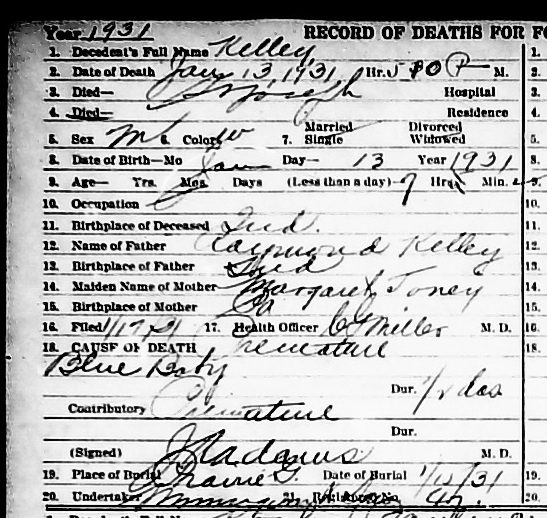 Year 1931 RECORD OF DEATHS FOR
1. Decedent's Full Name Kelley 1.
2. Date of Death Jan 13, 1931 Hr. 5 P M. 2.
3. Died— St Joseph Hospital 3.
4. Died— Residence 4.
5. Sex M 6. Color W 7. Married Single Divorced Widowed 5.
8. Date of Birth—Mo Jan Day— 13 Year 1931 8.
9. Age— Yrs. Mos. Days (Less than a day) 7 Hrs. Min. 9.
10. Occupation 10.
11. Birthplace of Deceased Ind. 11.
12. Name of Father Raymond Kelley 12.
13. Birthplace of Father Ind 13.
14. Maiden Name of Mother Margaret Toney 14.
15. Birthplace of Mother 15.
16. Filed 1/17/31 17. Health Officer Miller M. D. 16.
18. CAUSE OF DEATH Premature 18.
Blue Baby
Dur. 1/2 das
Contributory Premature
Dur.
(Signed) Adams M. D.
19. Place of Burial Prairie G. Date of Burial 1/15/31 19.
20. Undertaker 21. No. 20.